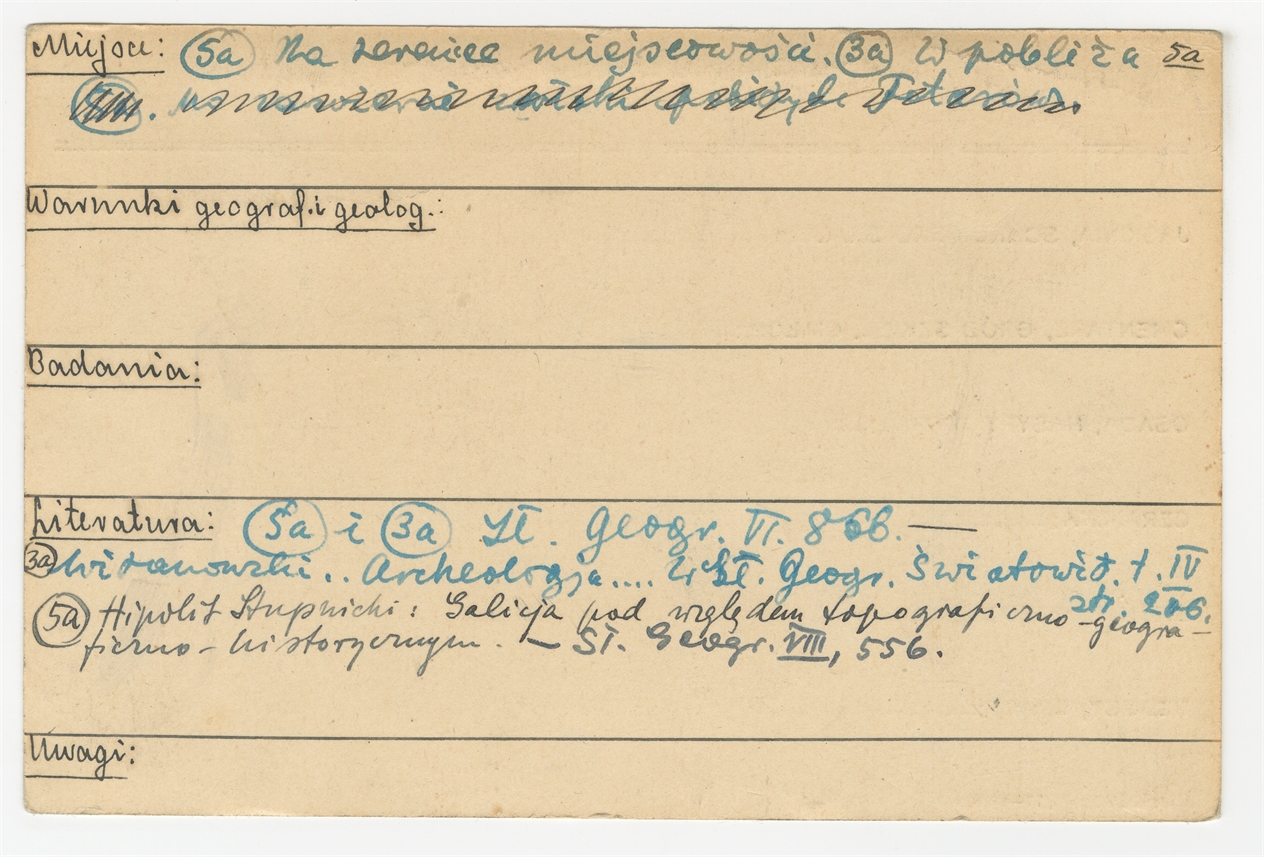 Miejsce: 5a Na terenie miejscowości. 3a W pobliżu 5a
Warunki geograf. i geolog.:
Badania:
Literatura: 5a i 3a Sł. Geogr. VI. 866. —
3a Witanowski.. Archeologja.... w Sł. Geogr. Światowit. t. IV
str. 206.
5a Hipolit Stupnicki: Galicja pod względem topograficzno-geogra-
ficzno-historycznym. — Sł. Geogr. VIII, 556.
Uwagi: